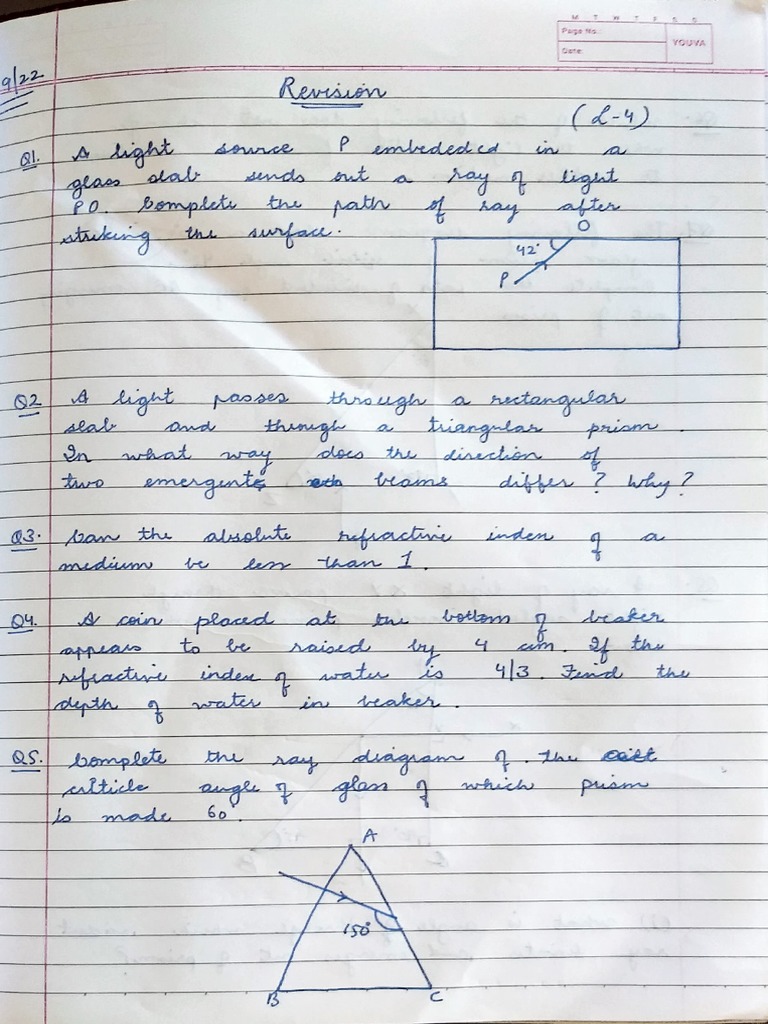 M T W T F S S
Page No.:
YOUVA
Date:
9/22
Revision
(L-4)
Q1. A light source P embededcd in a
glass slab sends out a ray of light
PO. Complete the path of ray after
striking the surface.
O
42°
P
Q2 A light passes through a rectangular
slab and through a triangular prism.
In what way does the direction of
two emergents beams differ? Why?
Q3. Can the absolute refractive index of a
medium be less than 1.
Q4. A coin placed at the bottom of beaker
appears to be raised by 4 cm. If the
refractive index of water is 4/3. Find the
depth of water in beaker.
Q5. Complete the ray diagram of. the
criticle angle of glass of which prism
is made 60°.
A
150°
B C